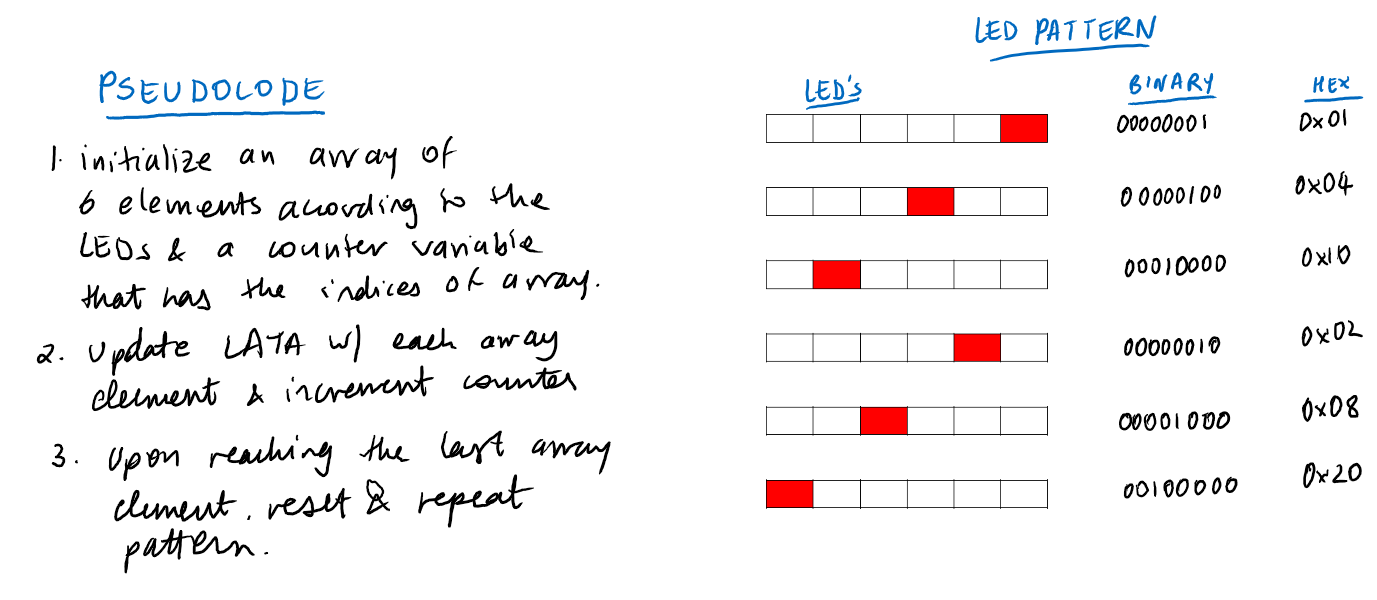 PSEUDOCODE
1. initialize an array of
6 elements according to the
LEDs & a counter variable
that has the indices of array.
2. Update LATA w/ each array
element & increment counter
3. Upon reaching the last array
element, reset & repeat
pattern.
LED PATTERN
LED's BINARY HEX
00000001 0x01
00000100 0x04
00010000 0x10
00000010 0x02
00001000 0x08
00100000 0x20